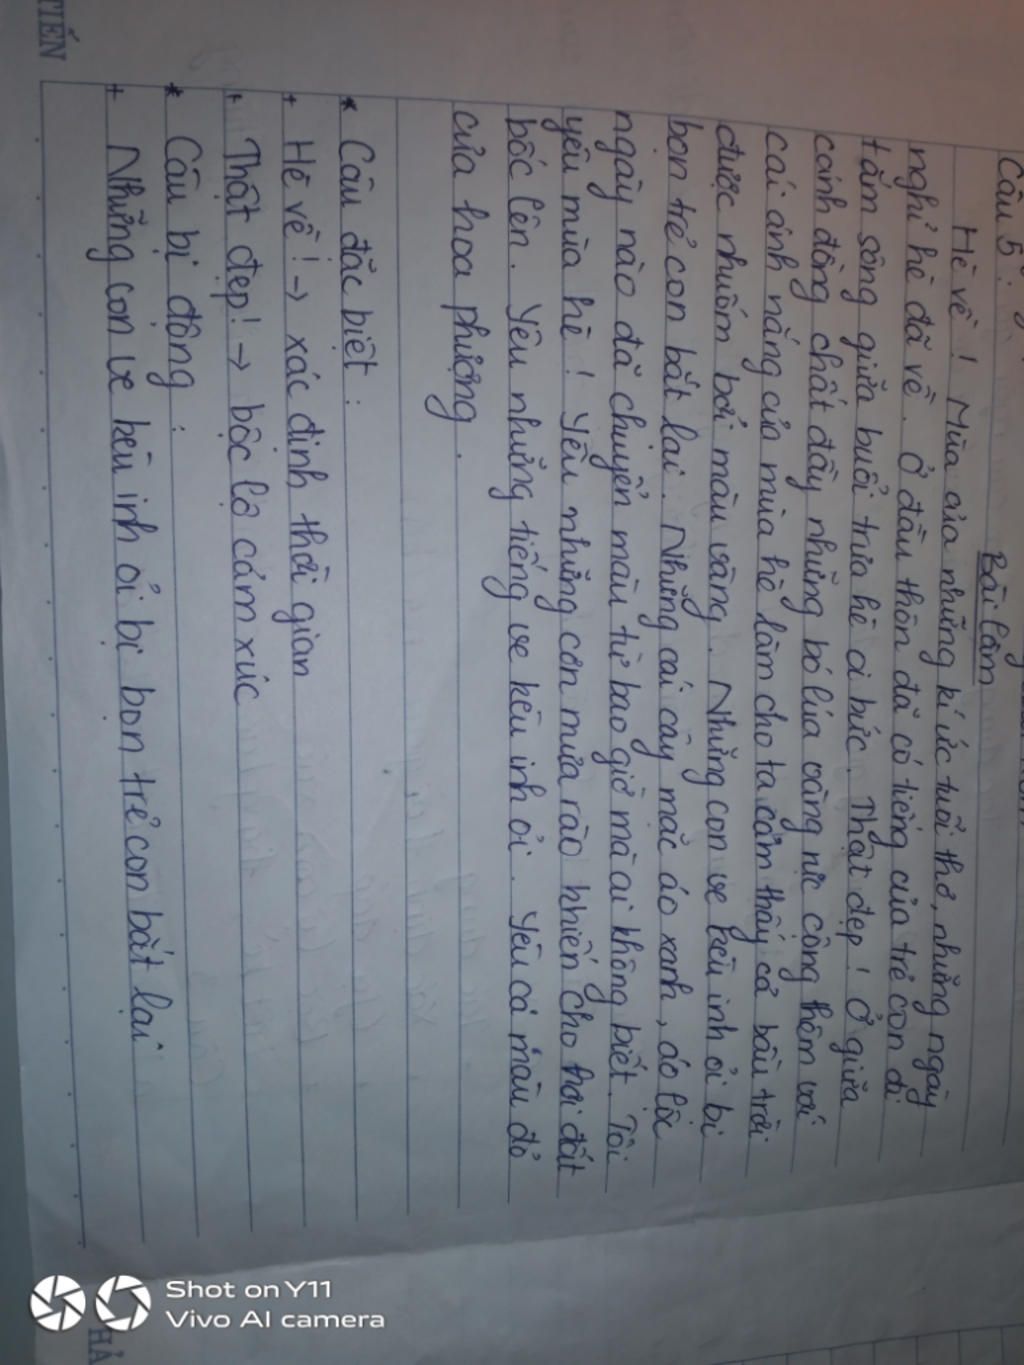 Câu 5:
Bài làm
Hè về! Mùa của những kí ức tuổi thơ, những ngày
nghỉ hè đã về. Ở đầu thôn đã có tiếng của trẻ con đi
tắm sông giữa buổi trưa hè oi bức. Thật đẹp! Ở giữa
cánh đồng chất đầy những bó lúa vàng nực cộng thêm với
cái ánh nắng của mùa hè làm cho ta cảm thấy cả bầu trời
được nhuốm bởi màu vàng. Những con ve kêu inh ỏi bị
bọn trẻ con bắt lại. Những cái cây mặc áo xanh, áo lục
ngày nào đã chuyển màu tự bao giờ mà ai không biết. Tôi
yêu mùa hè! Yêu những cơn mưa rào khiến cho hơi đất
bốc lên. Yêu những tiếng ve kêu inh ỏi. Yêu cả màu đỏ
của hoa phượng.
* Câu đặc biệt:
+ Hè về! → xác định thời gian
+ Thật đẹp! → bộc lộ cảm xúc
* Câu bị động:
+ Những con ve kêu inh ỏi bị bọn trẻ con bắt lại
TIẾN
Shot on Y11
Vivo AI camera